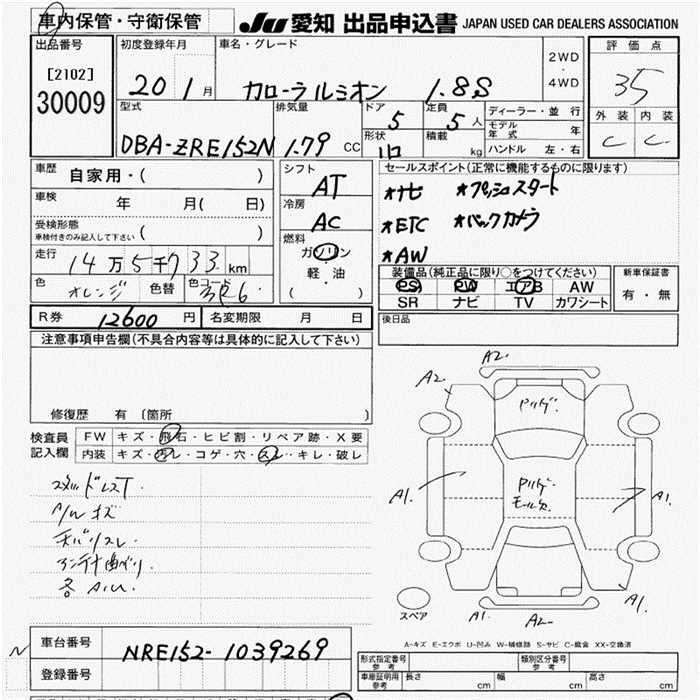 車内保管・守衛保管
JU 愛知 出品申込書 JAPAN USED CAR DEALERS ASSOCIATION
出品番号
[2102]
30009
初度登録年月
20 1 月
車名・グレード
カローラルミオン 1.8S
2WD
・
4WD
評価点
35
外装 内装
C C
型式
DBA-ZRE152N
排気量
1.79 CC
ドア
5
定員
5 人
形状
積載
kg
ディーラー・並行
モデル年式 年
ハンドル 左・右
車歴
自家用・( )
車検
年 月( 日)
受検形態
車検付きのみ記入して下さい ( )
走行
14万5千733km
色
オレンジ
色替
色コード
シフト
AT
冷房
AC
燃料
ガソリン
軽・油
( )
セールスポイント(正常に機能するものに限ります)
★ナビ ★プッシュスタート
★ETC ★バックカメラ
★AW
装備品(純正品に限り○をつけてください)
PS PW エアB AW
SR ナビ TV カワシート
新車保証書
有・無
R券 12600円
名変期限 月 日
後日品
注意事項申告欄(不具合内容等は具体的に記入して下さい)
修復歴 有 〔箇所 〕
検査員
記入欄
FW キズ・飛石・ヒビ割・リペア跡・X要
内装 キズ・汚レ・コゲ・穴・スレ・キレ・破レ
スタッドレスT.
A/Wキズ
アンテナ曲がり.
A2.
A2.
A1.
A1.
A1.
A1.
A2.
スペア
A-キズ E-エクボ U-凹み W-補修跡 S-サビ C-腐食 XX-交換済
車台番号
NRE152-1039269
登録番号
N
形式指定番号
参考
類別区分番号
参考
車庫証明用
参考
長さ cm
幅 cm
高さ cm